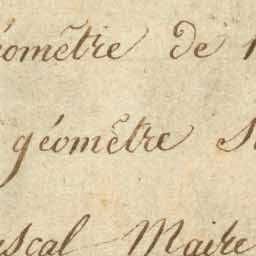 éométrie de
géomètre
scal Maire